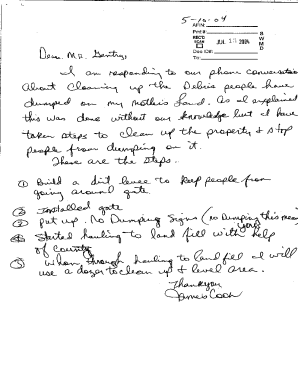 5-10-04
APN:
Pmt#
REC'D
SCAN
JUL 13 2004
Doc ID#:
To:
SWMD
Dear Mr. Gentry,
I am responding to our phone conversation
About Cleaning up the Debris people have
dumped on my mothers Land. As I explained
this was done without our knowledge but I have
taken steps to clean up the property & stop
people from dumping on it.
These are the steps.
① Build a dirt levee to keep people from
going around gate
② Installed gate
③ Put up. No Dumping Signs (no Dumping this year)
④ Started hauling to land fill with help
of county
⑤ When through hauling to land fill I will
use a dozer to clean up & level area.
Thankyou
James Cook